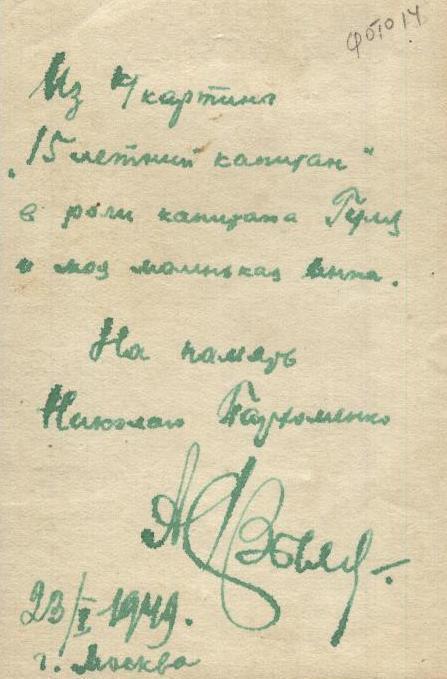 фото 14
Из к/картины
„15 летний капитан"
в роли капитана Гуля
и моя маленькая
На память
Николаю Пархоменко
А Хвыля
23/I 1949.
г. Москва